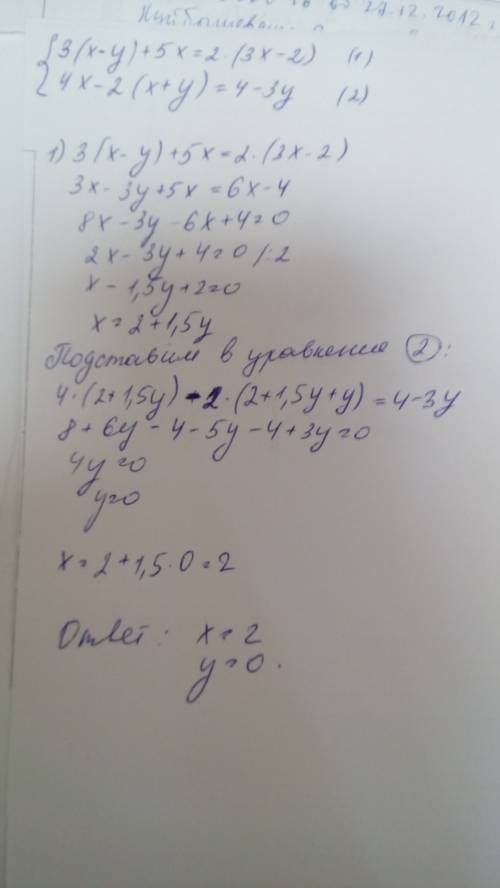 27.12.2012
{3(x-y)+5x=2·(3x-2) (1)
{4x-2(x+y)=4-3y (2)
1) 3(x-y)+5x=2·(3x-2)
3x-3y+5x=6x-4
8x-3y-6x+4=0
2x-3y+4=0 /:2
x-1,5y+2=0
x=2+1,5y
Подставим в уравнение (2):
4·(2+1,5y)-2·(2+1,5y+y)=4-3y
8+6y-4-5y-4+3y=0
4y=0
y=0
x=2+1,5·0=2
Ответ: x=2
y=0.